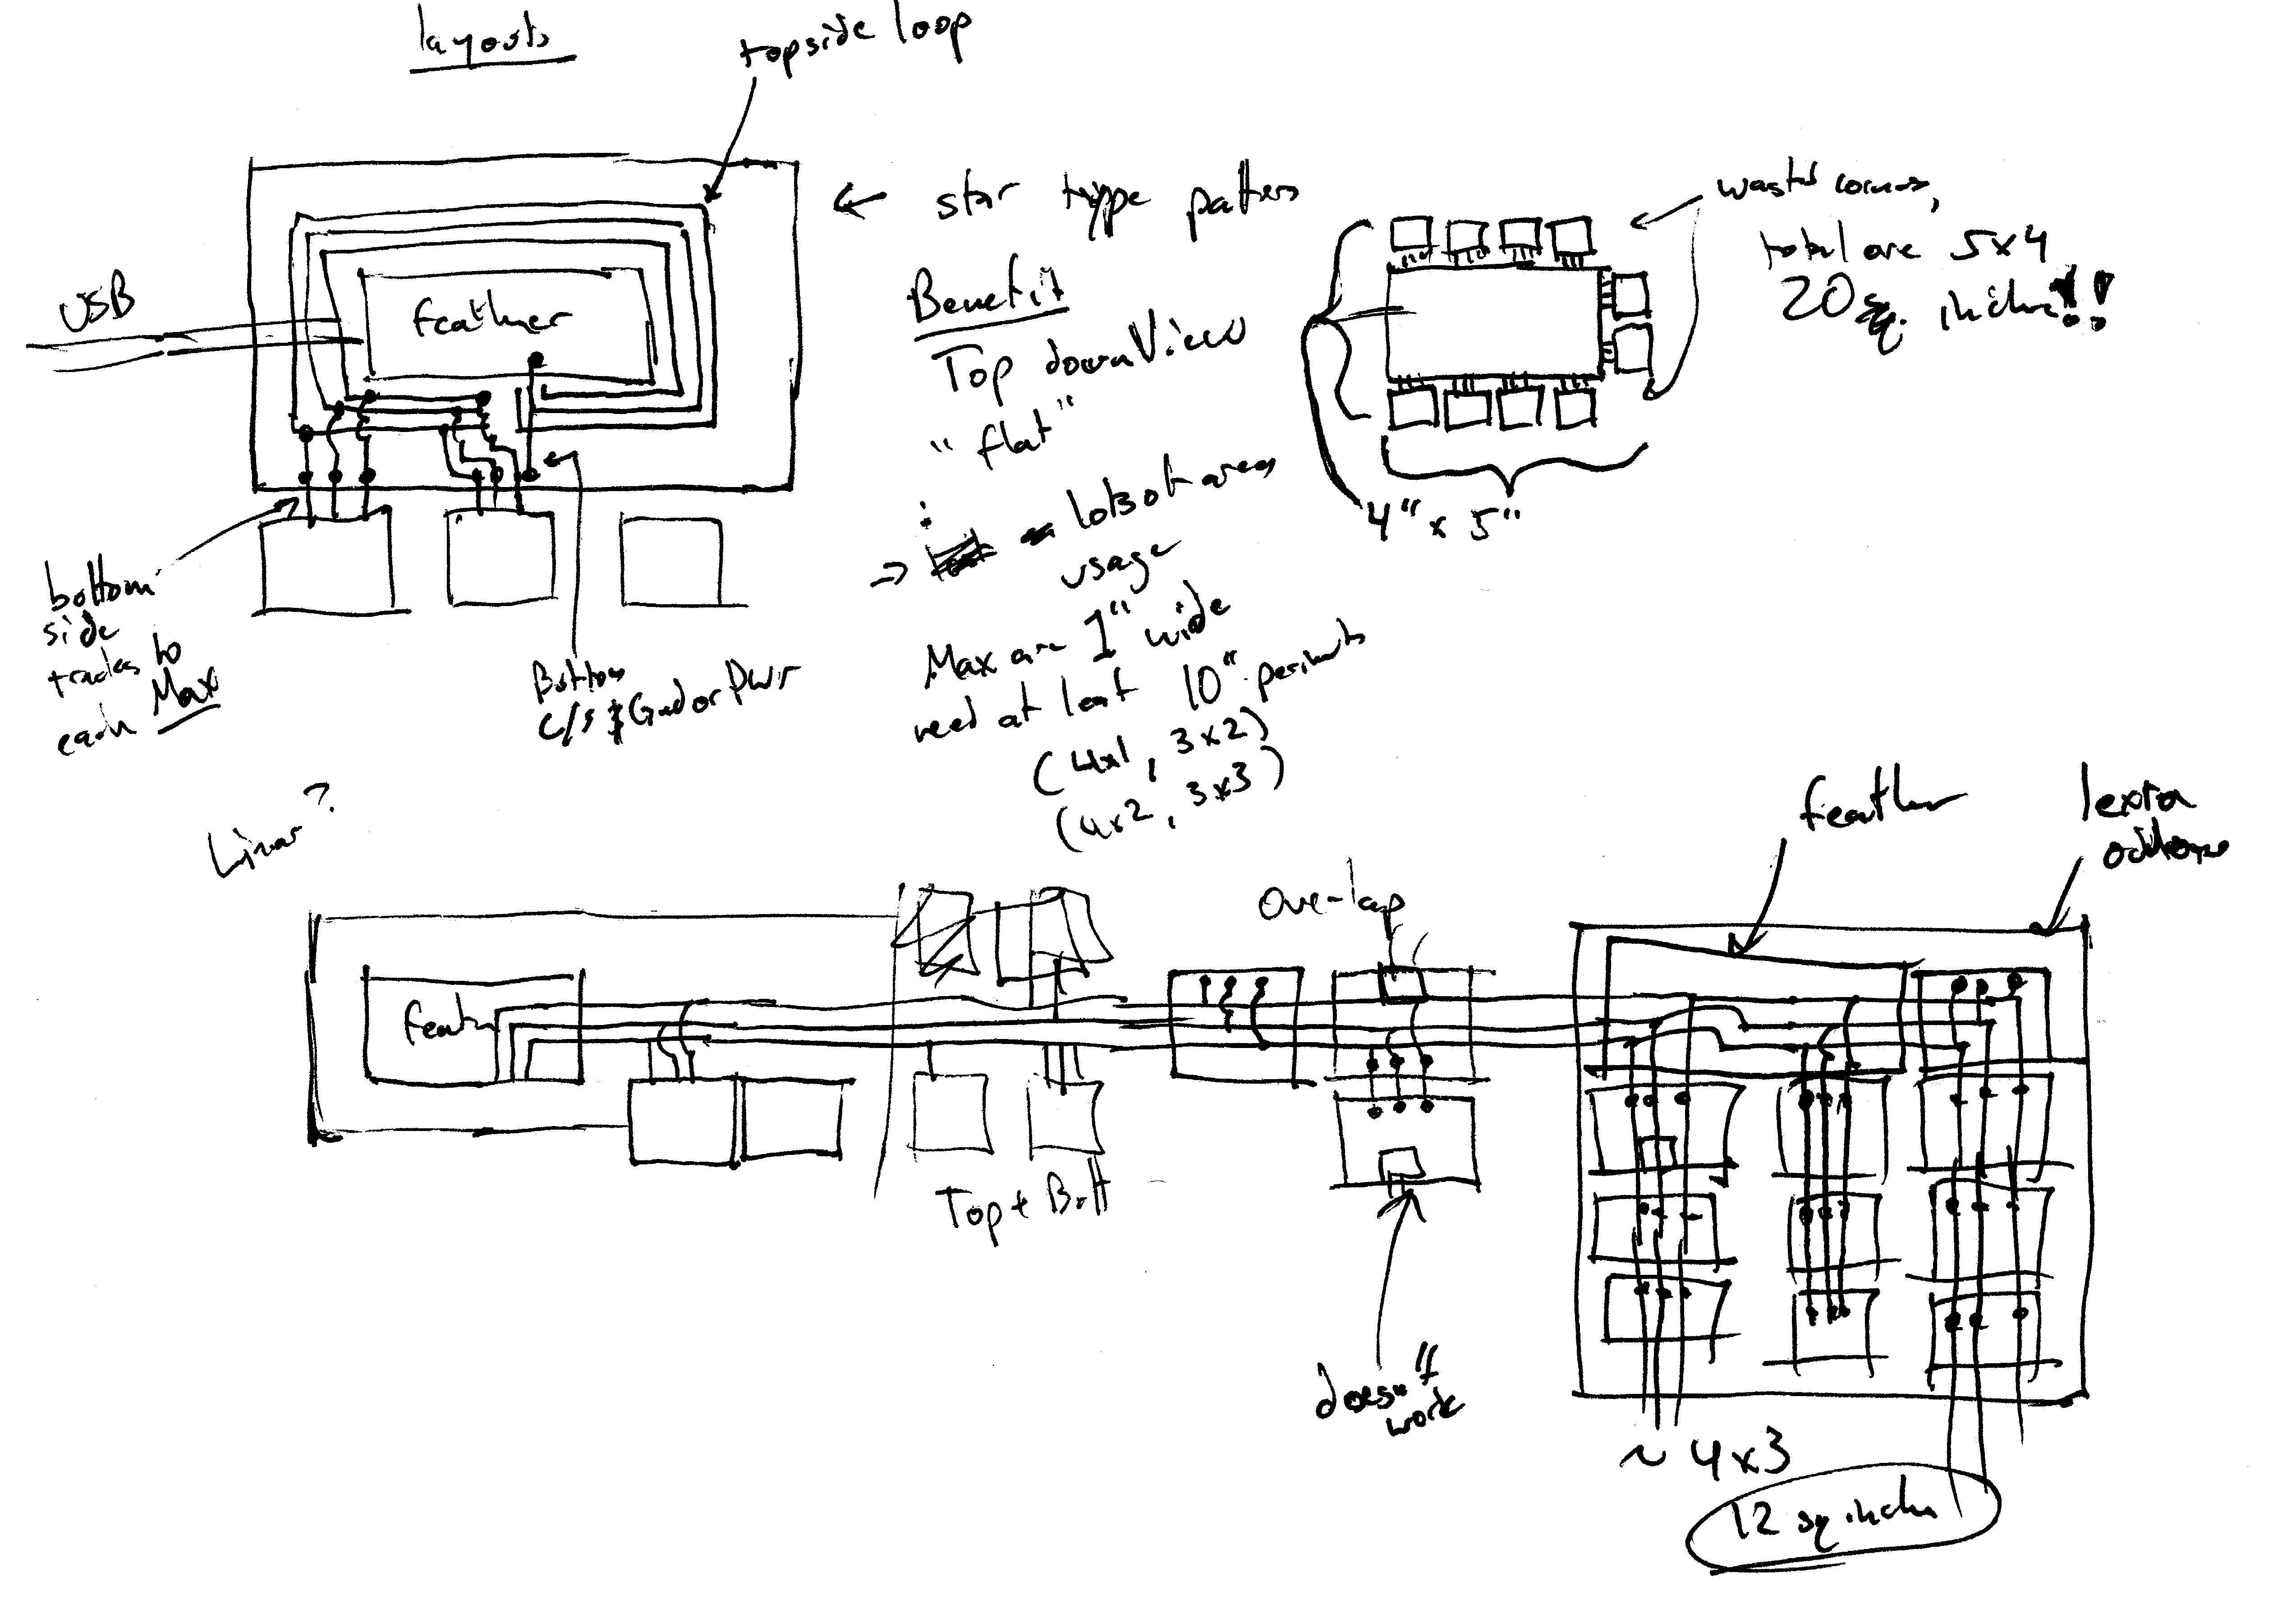 layouts
topside loop
USB
feather
bottom
side
traces to
each Max
Bottom
C/S & Gnd or Pwr
← star type pattern
Benefit
Top down View
"flat"
⇒ - lots of area
usage
Max are 1" wide
need at least 10" perimeter
(4x1, 3x2)
(4x2, 3x3)
wasted corners,
total are 5x4
20 sq. inches!!
4" x 5"
Linear?
feather
Top + Bott
Overlap
doesn't
work
feather
1 extra
~ 4x3
12 sq inches